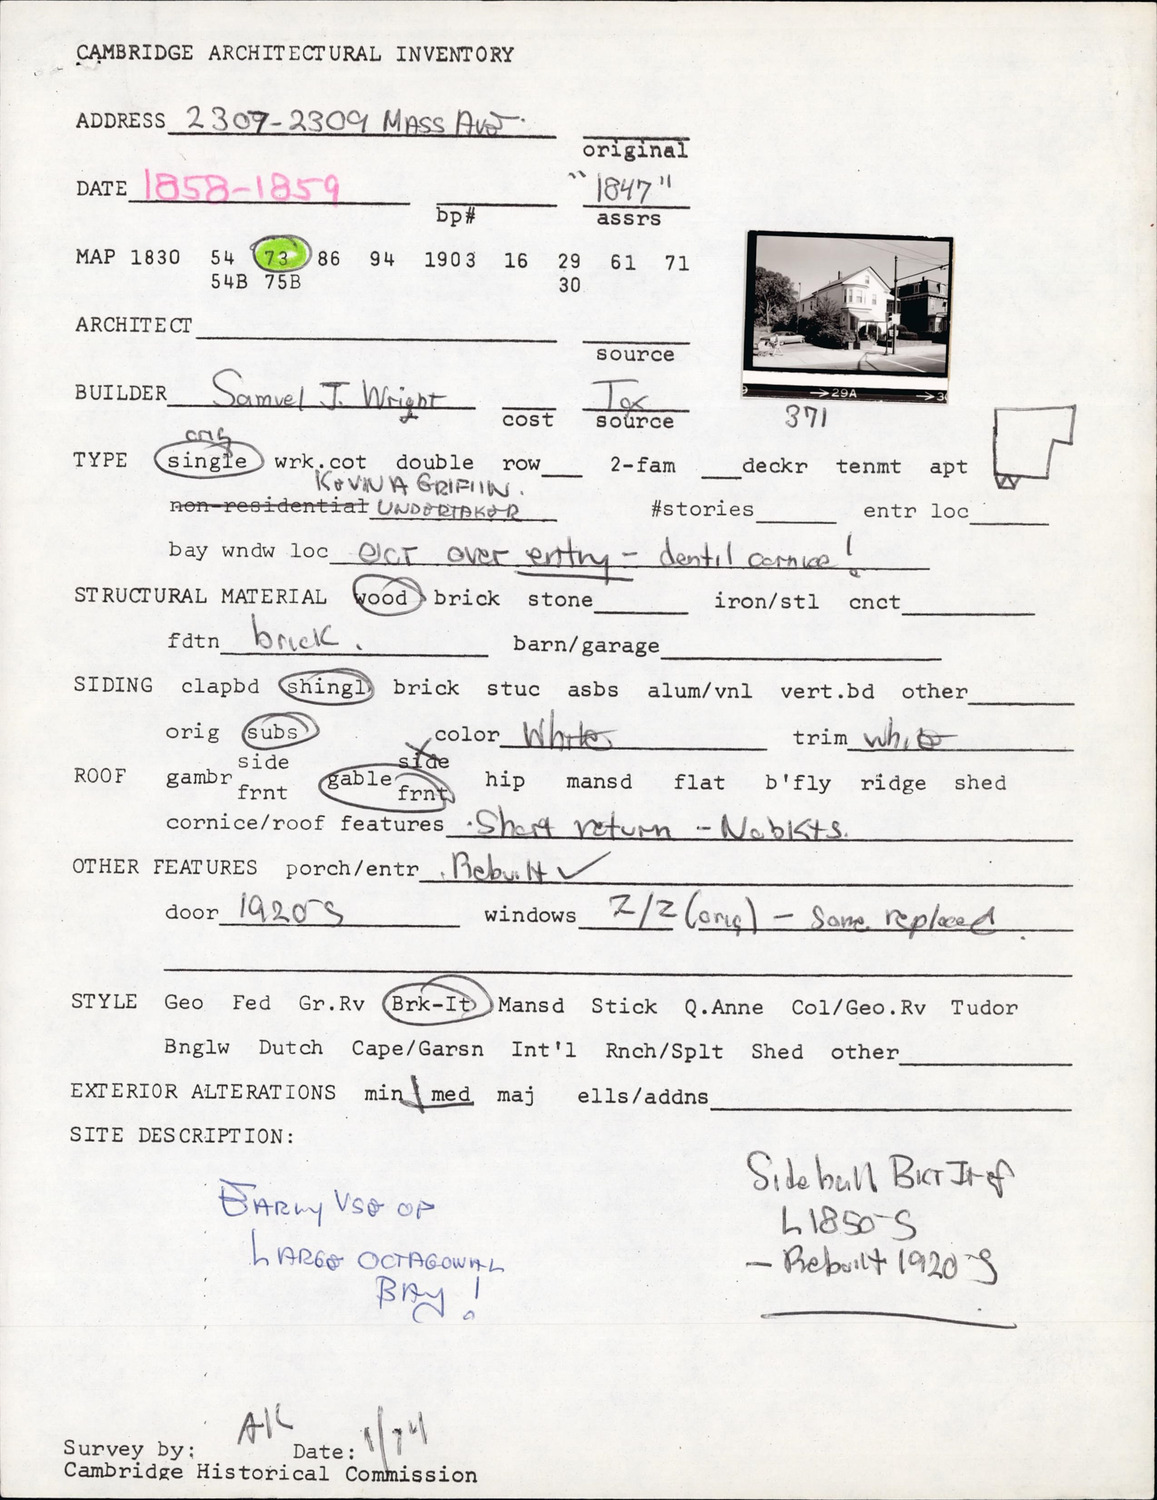 CAMBRIDGE ARCHITECTURAL INVENTORY
ADDRESS 2307-2309 MASS AVE.
original
DATE 1858-1859 "1847"
bp# assrs
MAP 1830 54 73 86 94 1903 16 29 61 71
54B 75B 30
ARCHITECT
source
BUILDER Samuel J. Wright Tax
cost source
→29A →3
371
orig
TYPE single wrk.cot double row 2-fam deckr tenmt apt
KEVIN A GRIFFIN.
non-residential UNDERTAKER #stories entr loc
bay wndw loc OCT over entry - dentil cornice!
STRUCTURAL MATERIAL wood brick stone iron/stl cnct
fdtn brick. barn/garage
SIDING clapbd shingl brick stuc asbs alum/vnl vert.bd other
orig subs color White trim white
side side
ROOF gambr gable hip mansd flat b'fly ridge shed
frnt frnt
cornice/roof features Short return - No bkts.
OTHER FEATURES porch/entr Rebuilt ✓
door 1920-S windows 2/2 (orig) - Some replaced
STYLE Geo Fed Gr.Rv Brk-It Mansd Stick Q.Anne Col/Geo.Rv Tudor
Bnglw Dutch Cape/Garsn Int'l Rnch/Splt Shed other
EXTERIOR ALTERATIONS min med maj ells/addns
SITE DESCRIPTION:
EARLY USE OF
LARGE OCTAGONAL
BAY!
Sidehall BKT It of
L1850-S
- Rebuilt 1920-S
Survey by: AK Date:
Cambridge Historical Commission